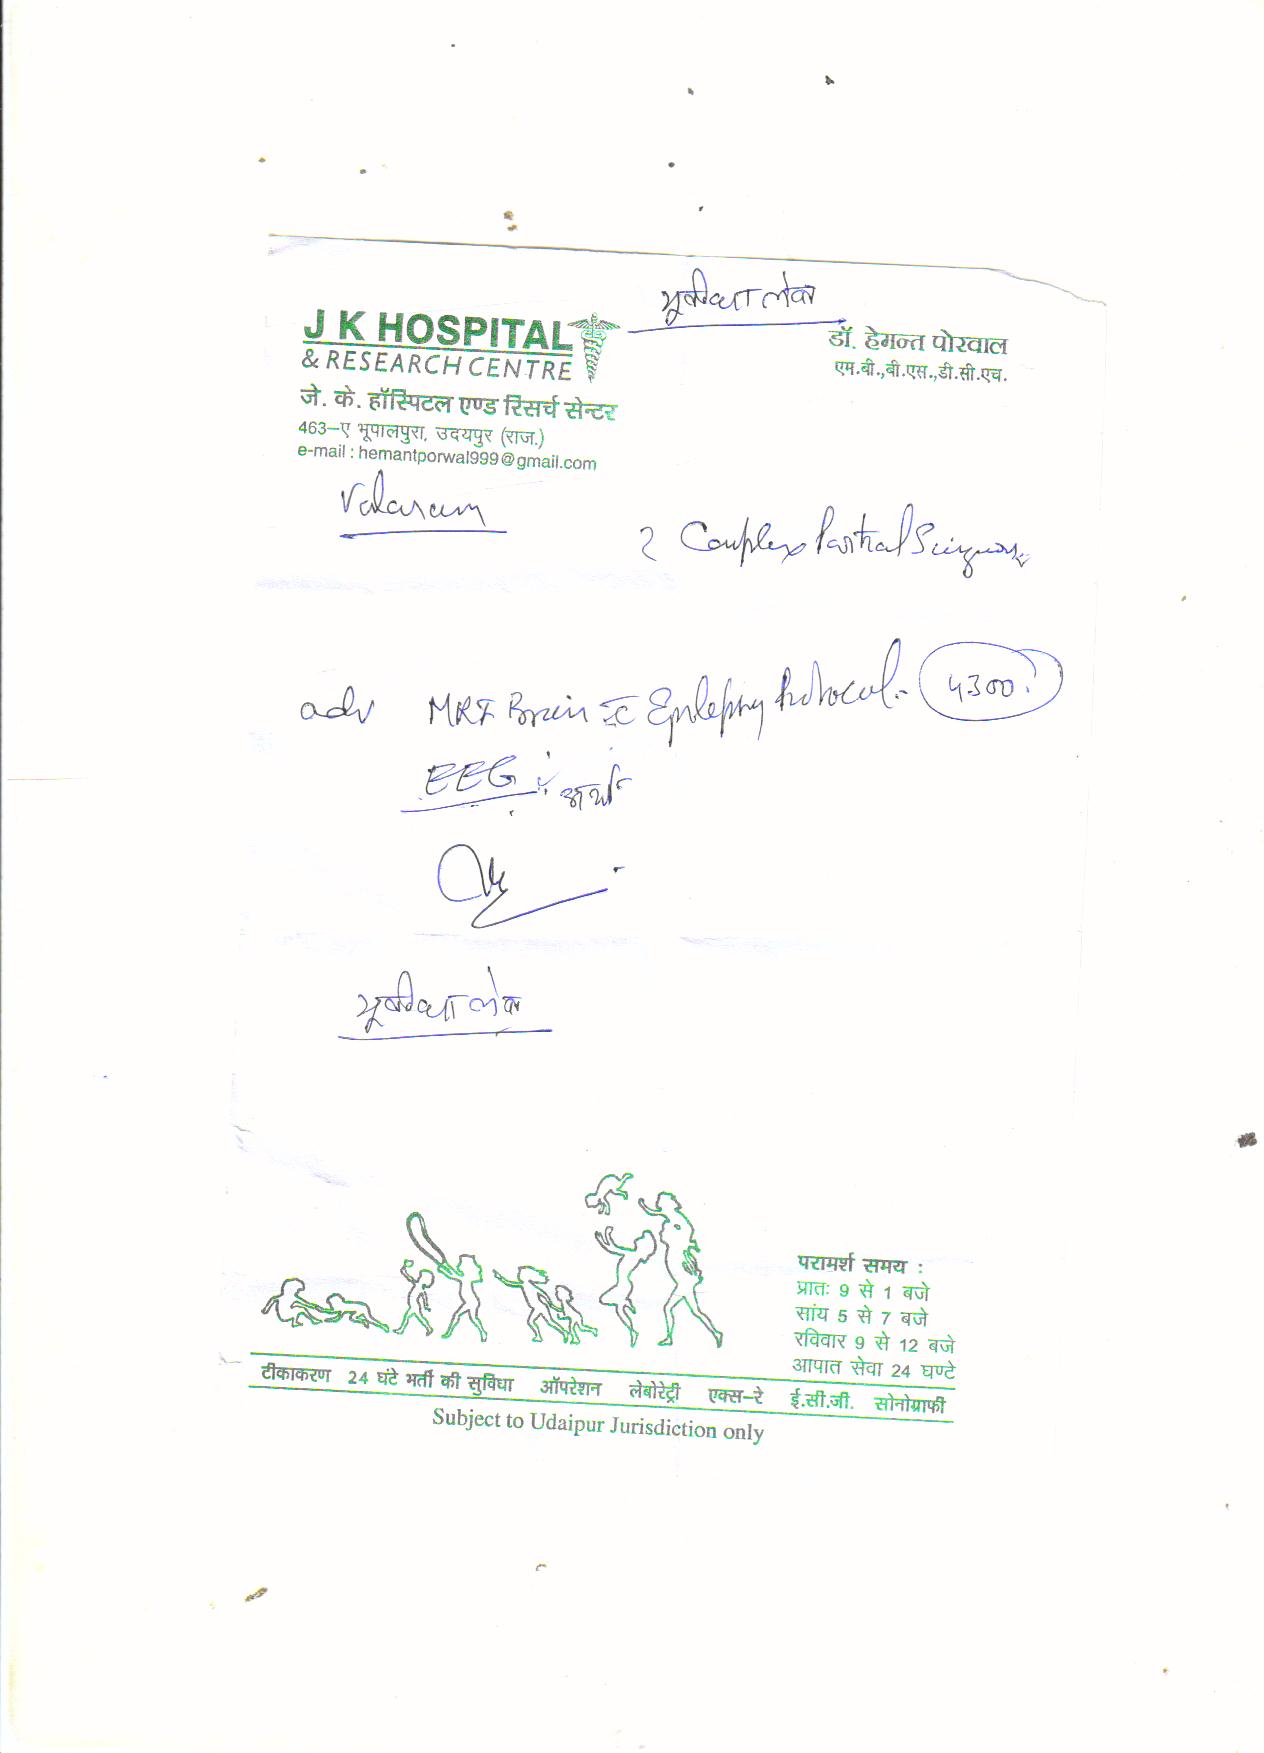 J K HOSPITAL
& RESEARCH CENTRE
जे. के. हॉस्पिटल एण्ड रिसर्च सेन्टर
463–ए भूपालपुरा, उदयपुर (राज.)
e-mail : hemantporwal999@gmail.com
डॉ. हेमन्त पोरवाल
एम.बी.,बी.एस.,डी.सी.एच.
Valaram
? Complex Partial Seizures
adv MRI Brain c Epilepsy Protocol. 4300
EEG
परामर्श समय :
प्रातः 9 से 1 बजे
सांय 5 से 7 बजे
रविवार 9 से 12 बजे
आपात सेवा 24 घण्टे
टीकाकरण 24 घंटे भर्ती की सुविधा ऑपरेशन लेबोरेट्री एक्स–रे ई.सी.जी. सोनोग्राफी
Subject to Udaipur Jurisdiction only